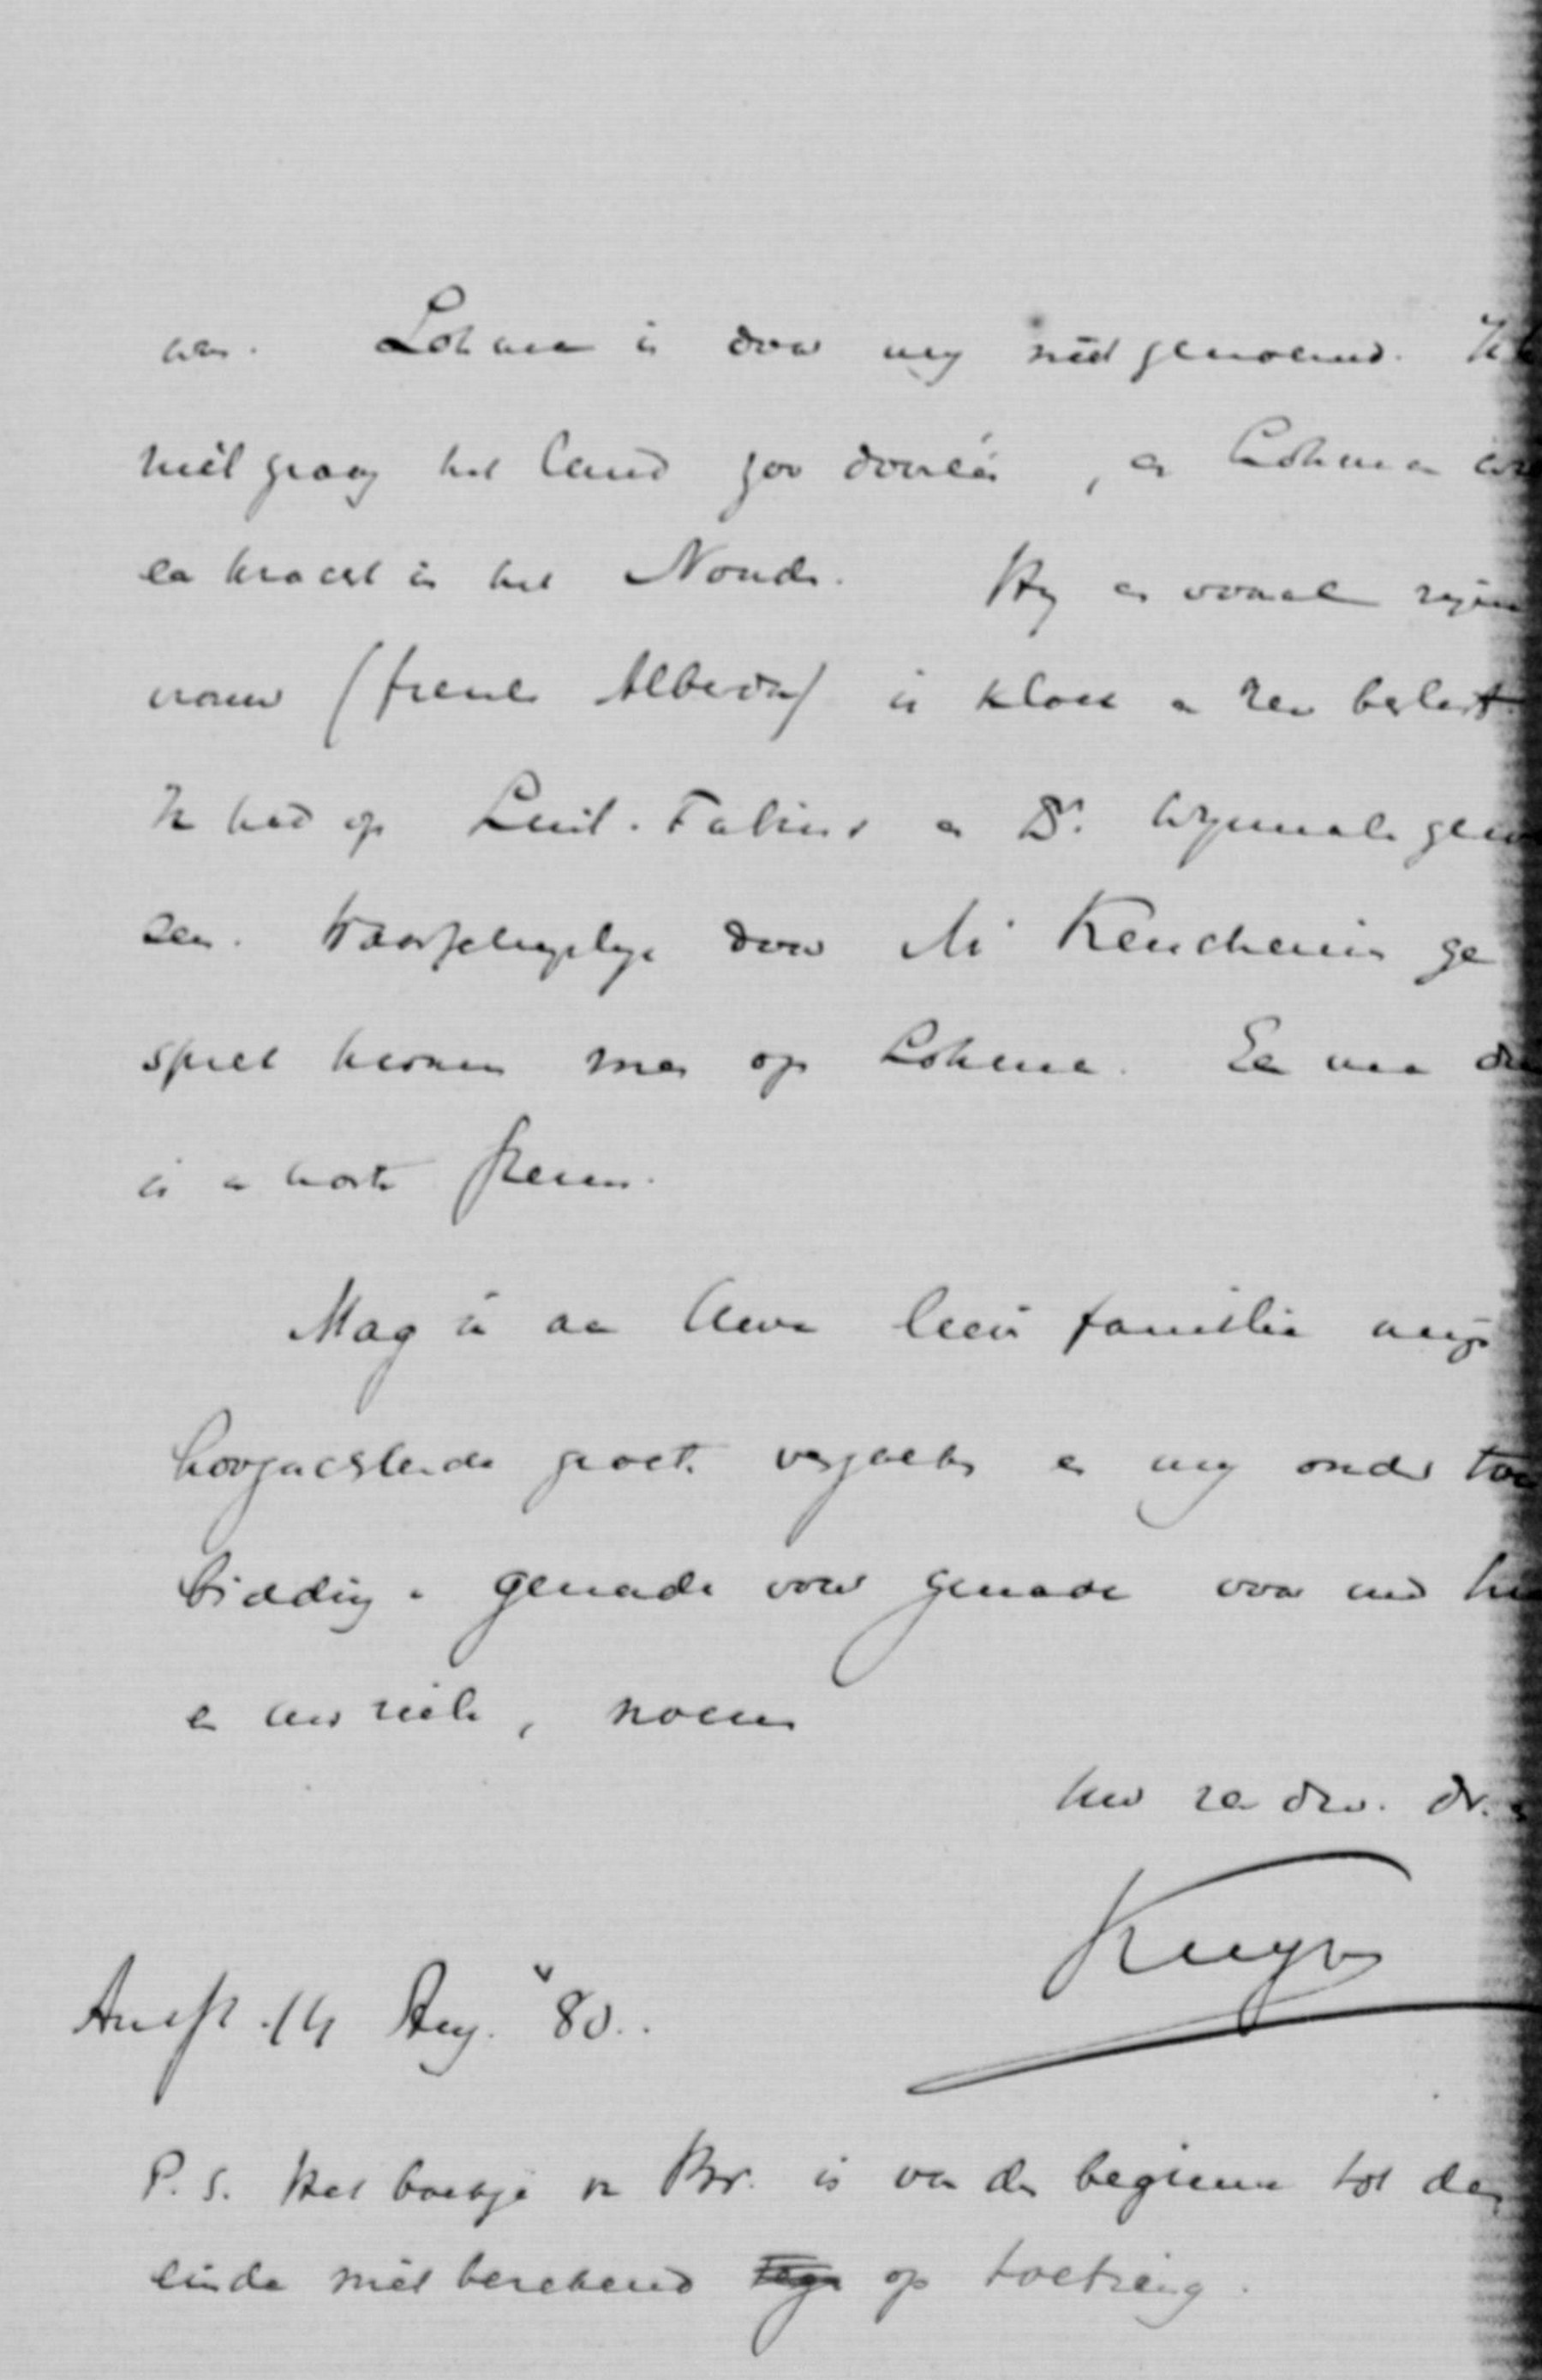 was. Lohman is door mij niet genoemd. Ik
niet graag het land zoo , en Lohman was
een kracht in het Noorden. Hij en vooral zijn
vrouw (freule Alberda) is kloek en zeer beslist.
Ik had op Luit. Fabius en Dr. gewe
zen. Waarschijnlijk door Mr Keuchenius ge
spret kwamen men op Lohman. En nu
is a korte keren.
Mag ik aan Uwe lieve familie mijn
hoogachtende groet verzoeken en mij onder toe
bidding van genade voor genade voor uw
en uw ziele, noemen
Uw zeer dw. dr.
Kuyper
Amst. 14 Aug. '80.
P. S. Het boekje v. Br. is van den beginne tot den
einde niet berekend op toetsing.